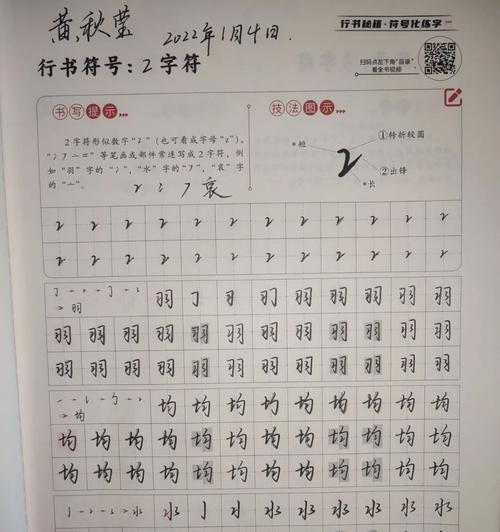 黄秋莹 2022年1月4日.
行书秘籍·符号化练字
扫码点左下角"目录"
看全书视频
行书符号:2字符
书写提示
2字符形似数字"2"(也可看成字母"z"),
等笔画或部件常连写成2字符,例
如"羽"字的"冫","水"字的"㇇","哀"字
的"亠"。
2 冫 ㇇ 哀
技法图示
短
①转折较圆
2
②出锋
长
2 2 2 2 2 2 2 2 2 2 2 2
2 2 2 2 2 2 2 2 2 2 2 2
羽 羽 羽 羽 羽 羽 羽
羽 羽 羽 羽 羽 羽 羽 羽 羽 羽 羽 羽
羽 羽 羽 羽 羽 羽 羽 羽 羽 羽 羽 羽
均 均 均 均 均 均 均 均 均 均
均 均 均 均 均 均 均 均 均 均 均 均
均 均 均 均 均 均 均 均 均 均 均 均
水 水 水 水 水 水 水 水 水